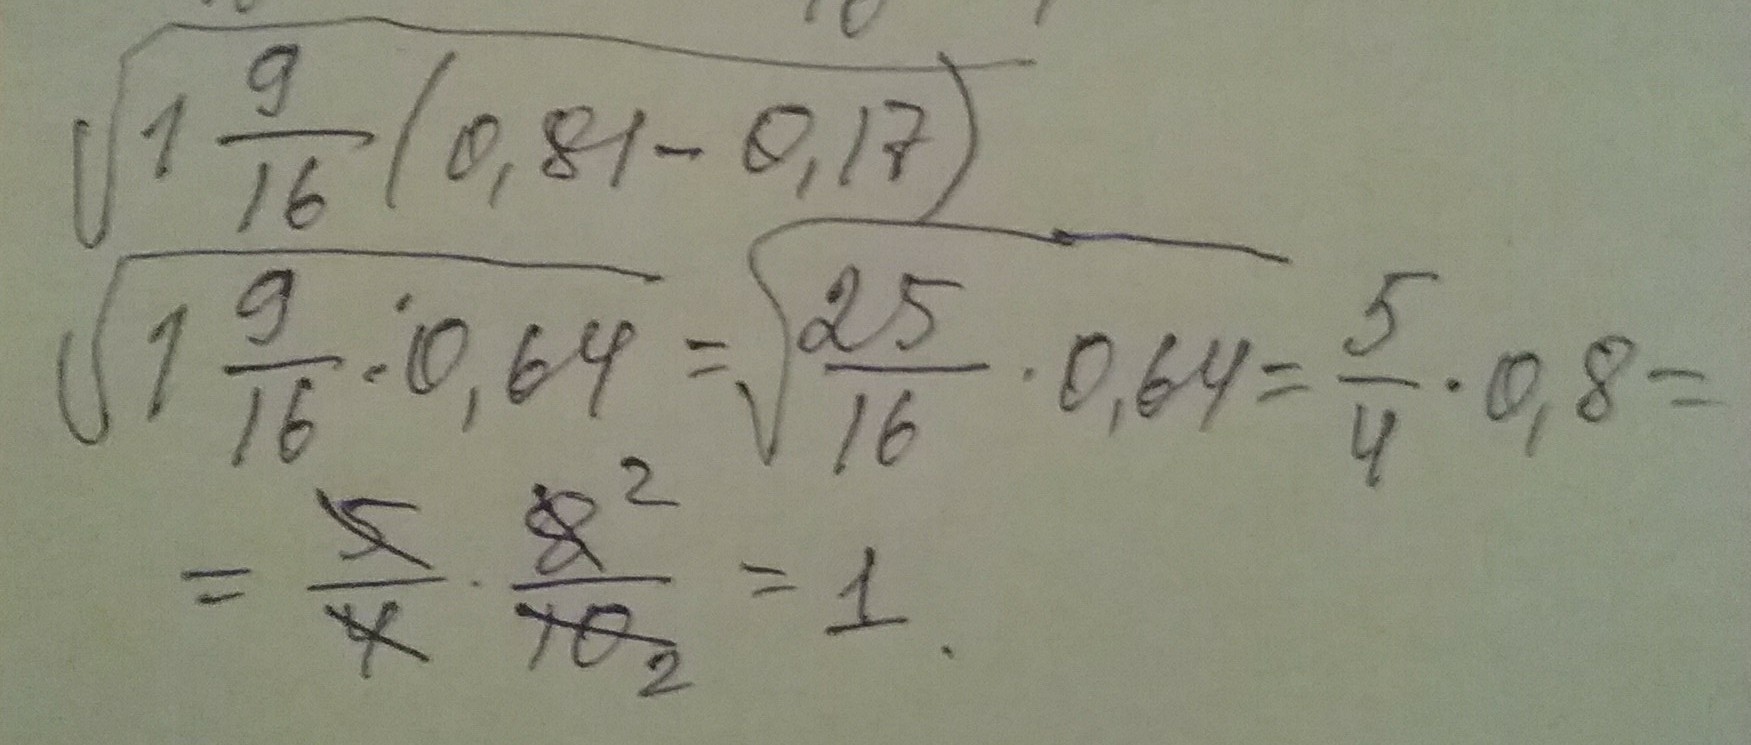 √(1 9/16 (0,81 - 0,17))
√(1 9/16 · 0,64) = √(25/16 · 0,64) = 5/4 · 0,8 =
= 5/4 · 8²/10₂ = 1.